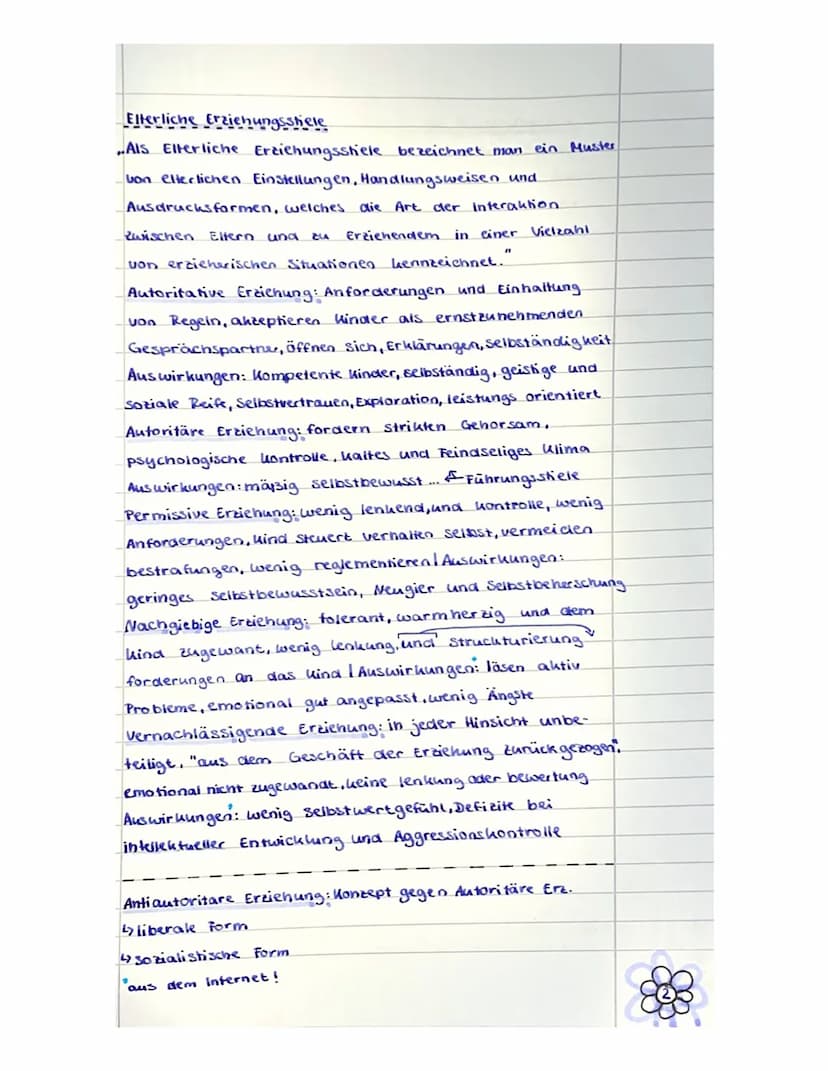 Elterliche Erziehungsstiele
„Als Elterliche Erziehungsstiele bezeichnet man ein Muster
von elterlichen Einstellungen, Handlungsweisen und
Ausdrucksformen, welches die Art der Interaktion
zwischen Eltern und zu Erziehendem in einer Vielzahl
von erzieherischen Situationen kennzeichnet."
Autoritative Erziehung: Anforderungen und Einhaltung
von Regeln, akzeptieren Kinder als ernstzunehmenden
Gesprächspartner, öffnen sich, Erklärungen, Selbständigkeit
Auswirkungen: Kompetente Kinder, selbständig, geistige und
soziale Reife, Selbstvertrauen, Exploration, leistungs orientiert
Autoritäre Erziehung: fordern strikten Gehorsam,
psychologische Kontrolle, kaltes und Feindseliges Klima
Auswirkungen: mäßig selbstbewusst ... ↯ Führungsstiele
Permissive Erziehung: wenig lenkend, und Kontrolle, wenig
Anforderungen, Kind steuert verhalten selbst, vermeiden
bestrafungen, wenig reglementieren | Auswirkungen:
geringes Selbstbewusstsein, Neugier und Selbstbeherschung
Nachgiebige Erziehung: tolerant, warmherzig und dem
Kind zugewant, wenig Lenkung, und Struckturierung
forderungen an das Kind | Auswirkungen*: läsen aktiv
Probleme, emotional gut angepasst, wenig Ängste
Vernachlässigende Erziehung: in jeder Hinsicht unbe-
teiligt, "aus dem Geschäft der Erziehung zurückgezogen",
emotional nicht zugewandt, keine lenkung oder bewertung
Auswirkungen*: wenig Selbstwertgefühl, Defizite bei
intellektueller Entwicklung und Aggressionskontrolle
Antiautoritare Erziehung: Konzept gegen Autoritäre Erz.
↳ liberale Form
↳ sozialistische Form
*aus dem Internet!
2